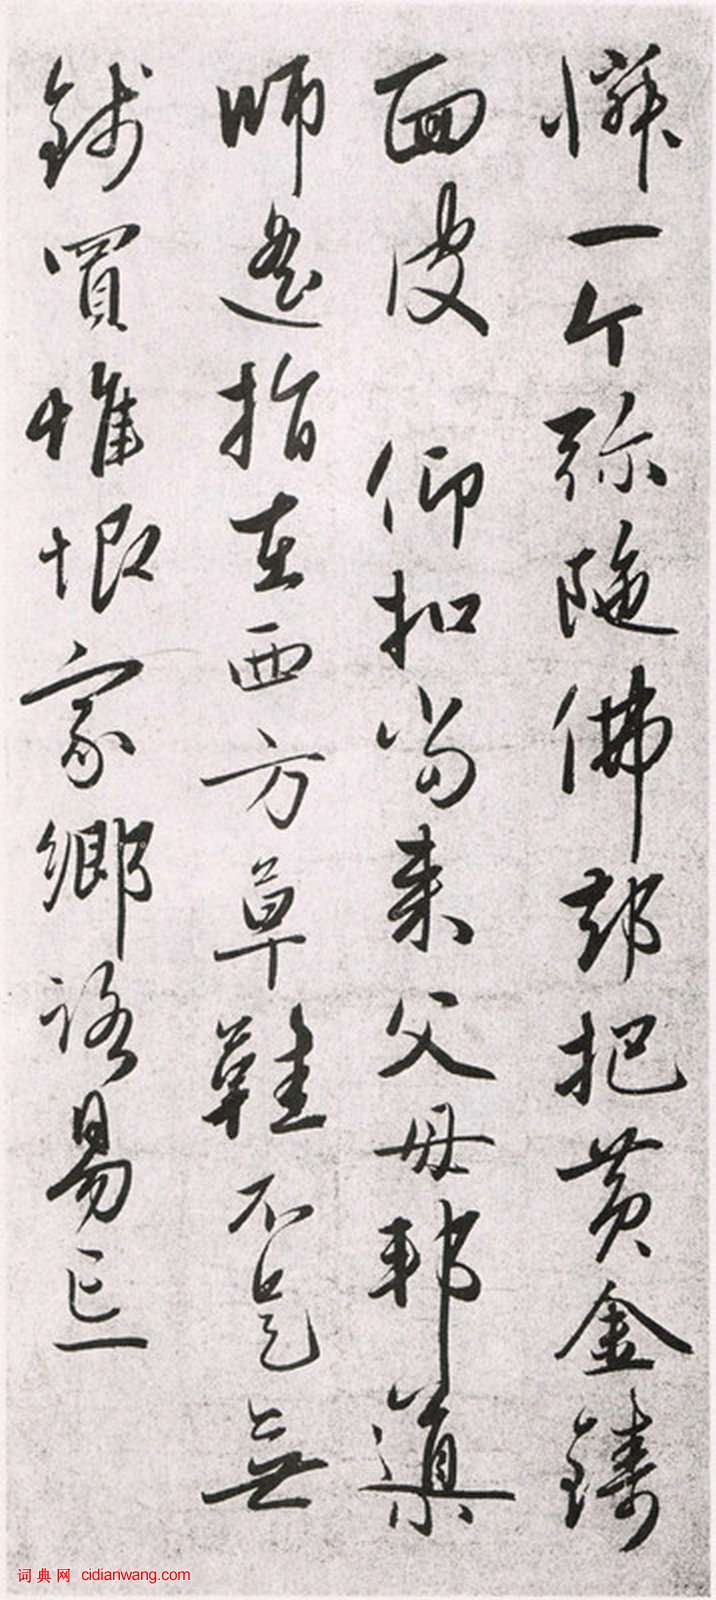 憐一个弥陁佛却把黄金鑄
面皮 仰扣當来父母邦導
師遙指在西方草鞋不是無
錢買惟恨家鄉路易忘
词典网 cidianwang.com